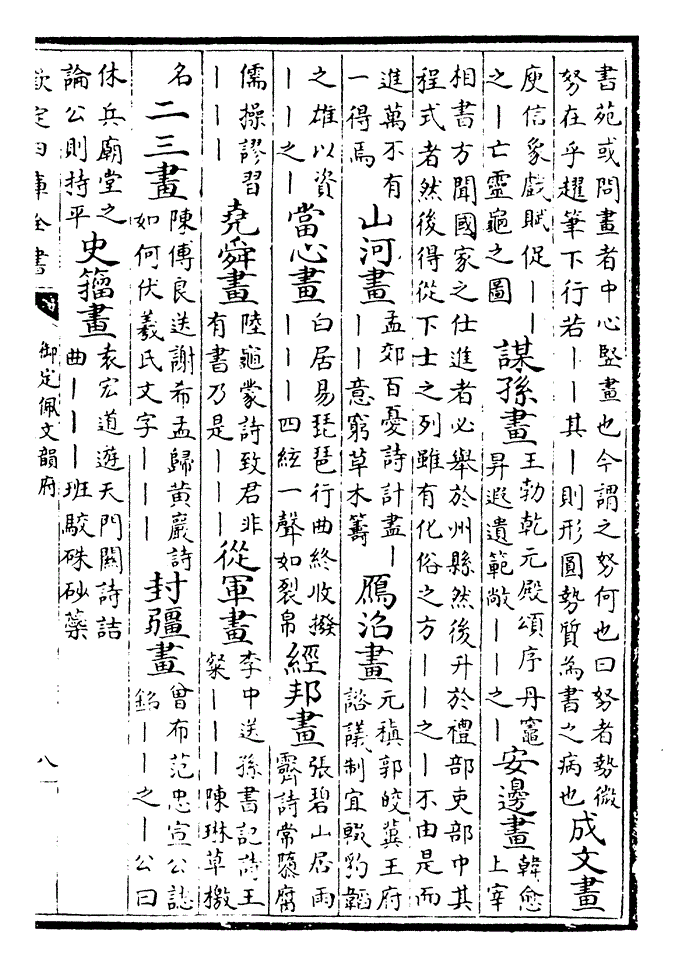 書苑或問畫者中心竪畫也今謂之努何也曰努者勢微
努在乎趯筆下行若丨丨其丨則形圓勢質為書之病也
成文畫
庾信象戲賦促丨丨
之丨亡靈龜之圖
謀孫畫
王勃乾元殿頌序丹竈
昇遐遺範敞丨丨之丨
安邊畫
韓愈
上宰
相書方聞國家之仕進者必舉於州縣然後升於禮部吏部中其
程式者然後得從下士之列雖有化俗之方丨丨之丨不由是而
進萬不有
一得焉
山河畫
孟郊百憂詩計盡丨
丨丨意窮草木籌
鴈沼畫
元稹郭皎冀王府
諮議制宜輟豹韜
之雄以資
丨丨之丨
當心畫
白居易琵琶行曲終收撥
丨丨丨四絃一聲如裂帛
經邦畫
張碧山居雨
霽詩常隳腐
儒操謬習
丨丨丨
堯舜畫
陸龜蒙詩致君非
有書乃是丨丨丨
從軍畫
李中送孫書記詩王
粲丨丨丨陳琳草檄
名
二三畫
陳傅良送謝希孟歸黃巖詩
如何伏羲氏文字丨丨丨
封疆畫
曾布范忠宣公誌
銘丨丨之丨公曰
休兵廟堂之
論公則持平
史籀畫
袁宏道遊天門關詩詰
曲丨丨丨班駮硃砂藥
欽定四庫全書
御定佩文韻府
八一